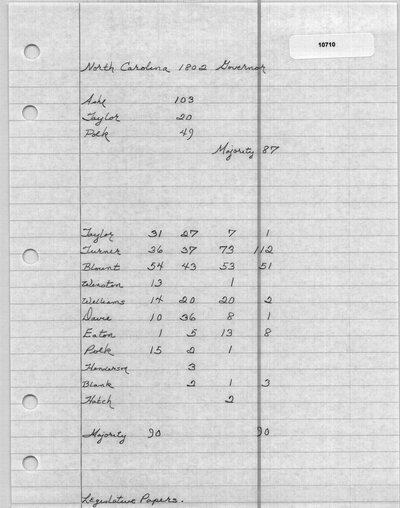 10710
North Carolina 1802 Governor
Ashe 103
Taylor 20
Polk 49
Majority 87
Taylor 31 27 7 1
Turner 36 37 73 112
Blount 54 43 53 51
Winston 13 1
Williams 14 20 20 2
Davie 10 36 8 1
Eaton 1 5 13 8
Polk 15 2 1
Henderson 3
Blank 2 1 3
Hatch 2
Majority 90 90
Legislative Papers.